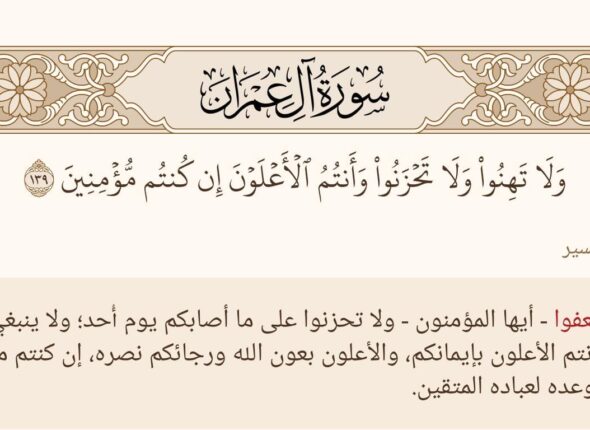 سُورَةُ آلِ عِمْرَانَ
وَلَا تَهِنُوا۟ وَلَا تَحْزَنُوا۟ وَأَنتُمُ ٱلْأَعْلَوْنَ إِن كُنتُم مُّؤْمِنِينَ ١٣٩
سير
عفوا - أيها المؤمنون - ولا تحزنوا على ما أصابكم يوم أُحد؛ ولا ينبغي
نتم الأعلون بإيمانكم، والأعلون بعون الله ورجائكم نصره، إن كنتم م
وعده لعباده المتقين.